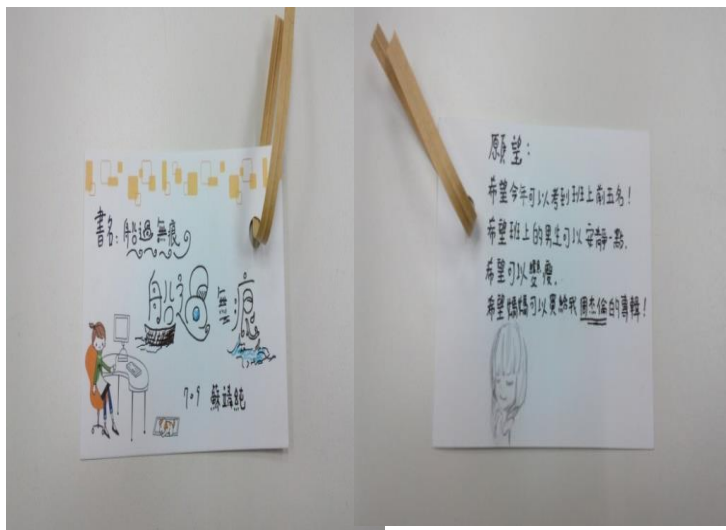 書名:船過無痕
船過無痕
709 蘇靖純
願望:
希望今年可以考到班上前五名!
希望班上的男生可以安靜一點.
希望可以變瘦.
希望媽媽可以買給我周杰倫的專輯!